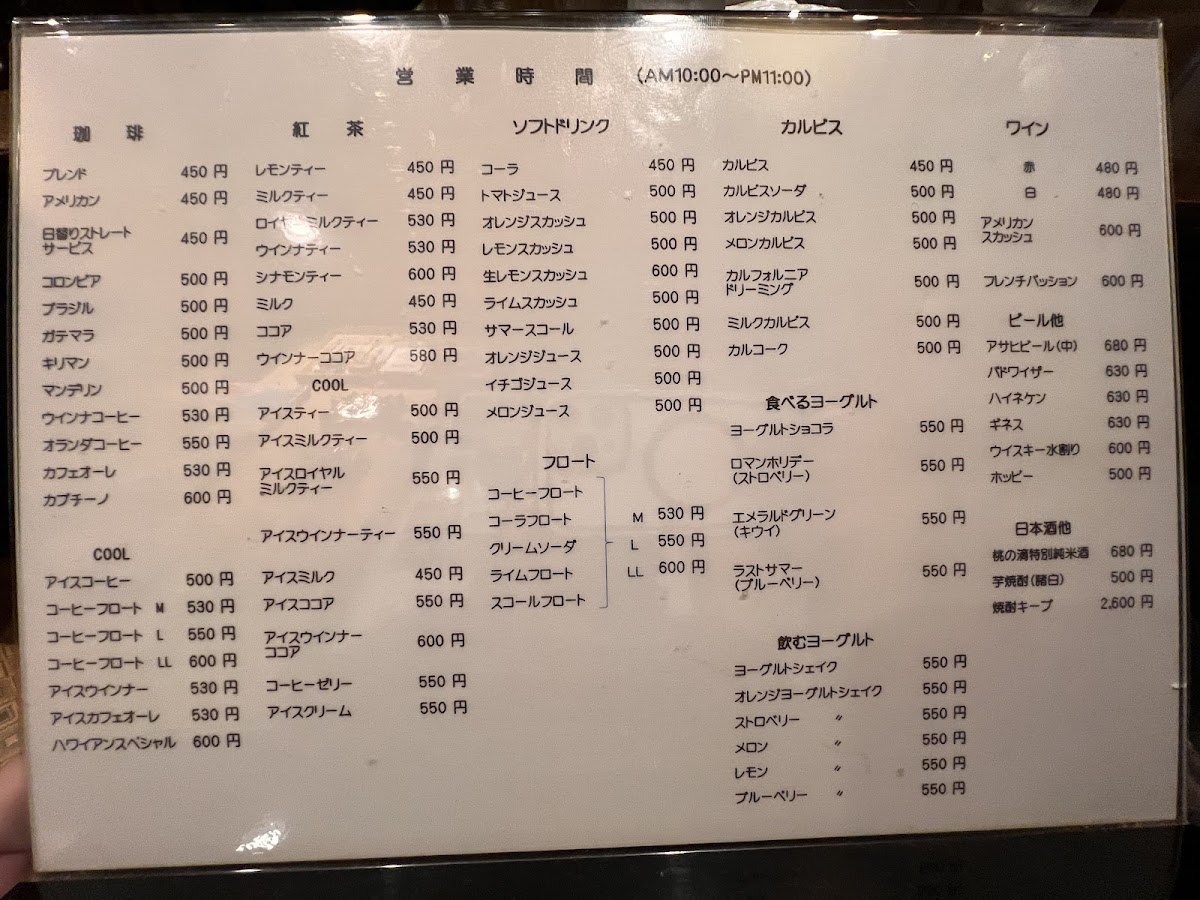 営業時間 (AM10:00～PM11:00)
珈琲
ブレンド 450円
アメリカン 450円
日替りストレート
サービス 450円
コロンビア 500円
ブラジル 500円
ガテマラ 500円
キリマン 500円
マンデリン 500円
ウインナコーヒー 530円
オランダコーヒー 550円
カフェオーレ 530円
カプチーノ 600円
COOL
アイスコーヒー 500円
コーヒーフロート M 530円
コーヒーフロート L 550円
コーヒーフロート LL 600円
アイスウインナー 530円
アイスカフェオーレ 530円
ハワイアンスペシャル 600円
紅茶
レモンティー 450円
ミルクティー 450円
ロイヤルミルクティー 530円
ウインナティー 530円
シナモンティー 600円
ミルク 450円
ココア 530円
ウインナーココア 580円
COOL
アイスティー 500円
アイスミルクティー 500円
アイスロイヤル
ミルクティー 550円
アイスウインナーティー 550円
アイスミルク 450円
アイスココア 550円
アイスウインナー
ココア 600円
コーヒーゼリー 550円
アイスクリーム 550円
ソフトドリンク
コーラ 450円
トマトジュース 500円
オレンジスカッシュ 500円
レモンスカッシュ 500円
生レモンスカッシュ 600円
ライムスカッシュ 500円
サマースコール 500円
オレンジジュース 500円
イチゴジュース 500円
メロンジュース 500円
フロート
コーヒーフロート
コーラフロート
クリームソーダ
ライムフロート
スコールフロート
M 530円
L 550円
LL 600円
カルピス
カルピス 450円
カルピスソーダ 500円
オレンジカルピス 500円
メロンカルピス 500円
カルフォルニア
ドリーミング 500円
ミルクカルピス 500円
カルコーク 500円
食べるヨーグルト
ヨーグルトショコラ 550円
ロマンホリデー
(ストロベリー) 550円
エメラルドグリーン
(キウイ) 550円
ラストサマー
(ブルーベリー) 550円
飲むヨーグルト
ヨーグルトシェイク 550円
オレンジヨーグルトシェイク 550円
ストロベリー 〃 550円
メロン 〃 550円
レモン 〃 550円
ブルーベリー 〃 550円
ワイン
赤 480円
白 480円
アメリカン
スカッシュ 600円
フレンチパッション 600円
ビール他
アサヒビール(中) 680円
バドワイザー 630円
ハイネケン 630円
ギネス 630円
ウイスキー水割り 600円
ホッピー 500円
日本酒他
桃の滴特別純米酒 680円
芋焼酎(膳白) 500円
焼酎キープ 2,600円